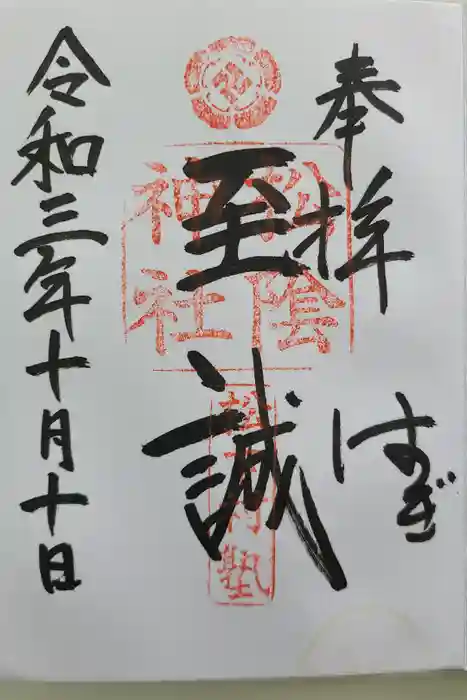 奉拝
はぎ
至誠
松陰
神社
松下村塾
令和三年十月十日